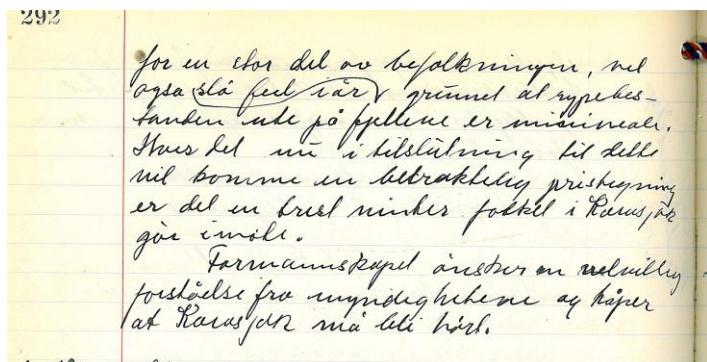 292
for en stor del av befolkningen, vel
også slå feil i år grunnet at rypebes-
tanden ute på fjellene er minimale.
Hvis det nu i tilslutning til dette
vil komme en betraktelig prisstegning
er det en trest vinter folket i Karasjok
går imøte.
Formannskapet ønsker en velvillig
forståelse fra myndighetene og håper
at Karasjok må bli hørt.